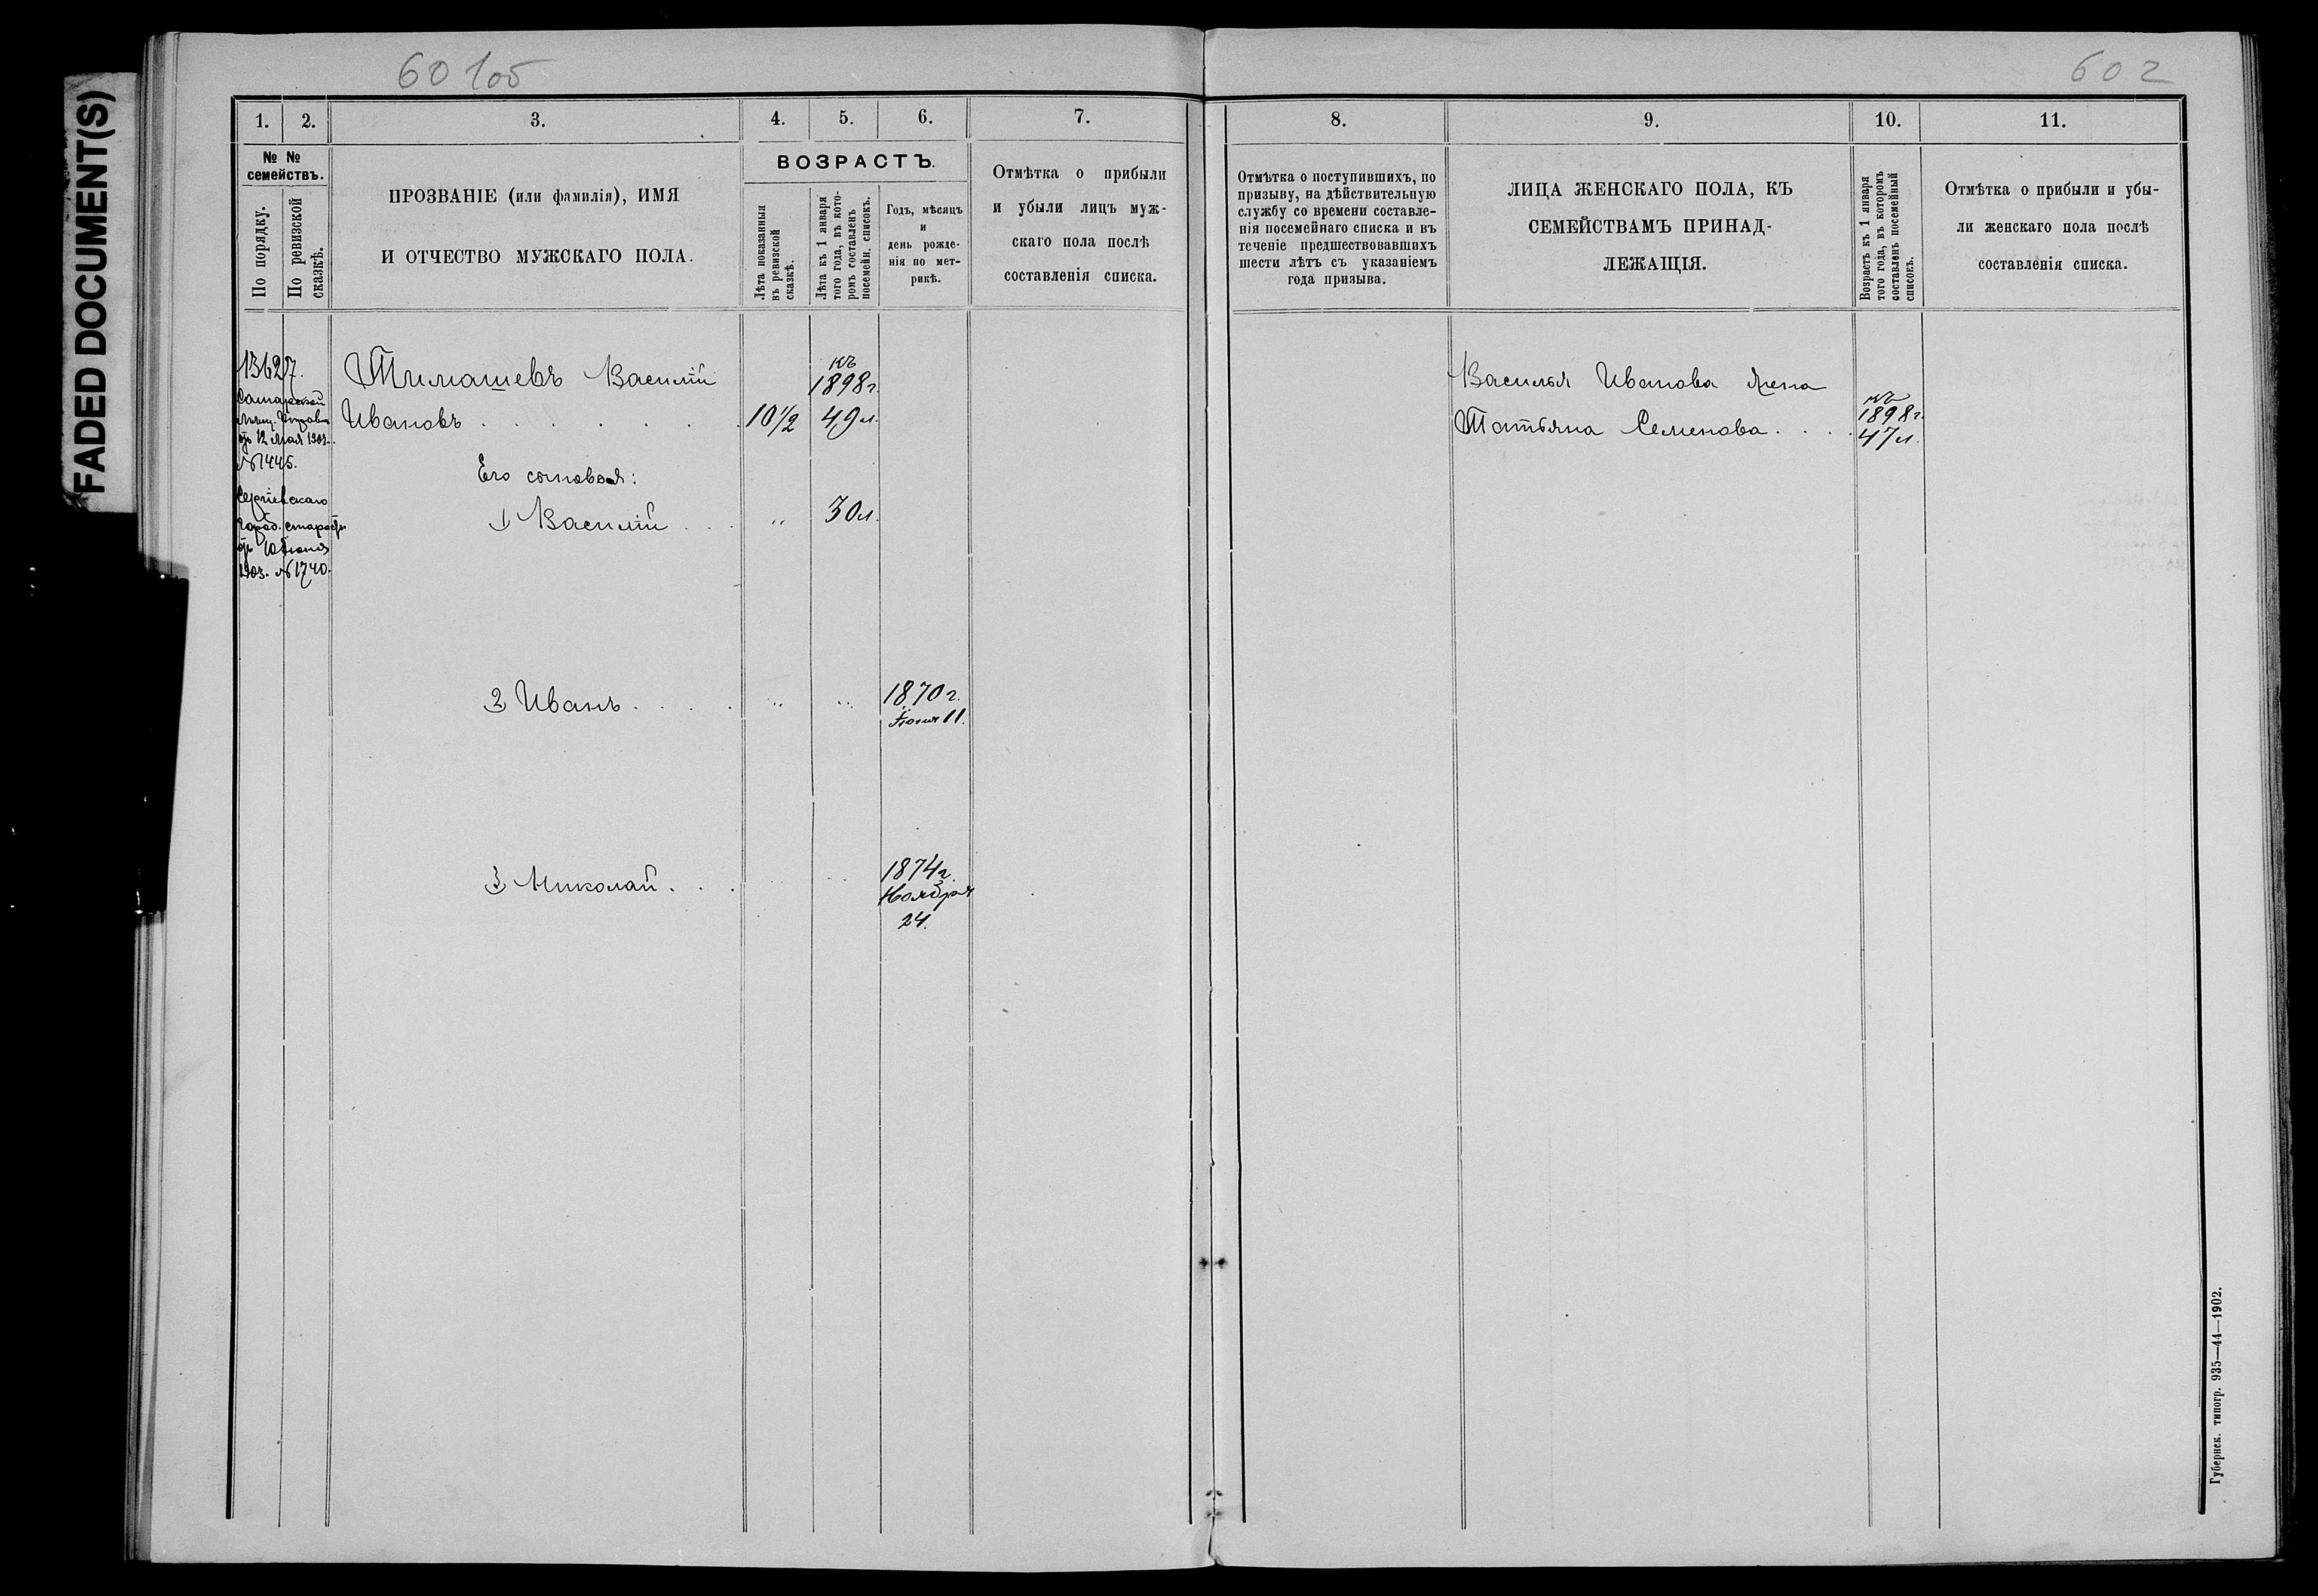 FADED DOCUMENT(S)
601об
602
1. 2. 3. 4. 5. 6. 7.
№ №
семействъ.
По порядку.
По ревизской
сказкѣ.
ПРОЗВАНІЕ (или фамилія), ИМЯ
И ОТЧЕСТВО МУЖСКАГО ПОЛА.
ВОЗРАСТЪ.
Лѣта показанныя
въ ревизской
сказкѣ.
Лѣта къ 1 января
того года, въ кото-
ромъ составленъ
посемейн. списокъ.
Годъ, мѣсяцъ
и
день рожде-
нія по мет-
рикѣ.
Отмѣтка о прибыли
и убыли лицъ муж-
скаго пола послѣ
составленія списка.
13627.
Самарской
мѣщ. Управы
отъ 12 Мая 1903г.
№1445.
Сергіевскаго
Город. старосты
отъ 10 Іюня
1903. №1740.
Тимашевъ Василій
Ивановъ . . . . . . 10½
къ
1898г.
49л.
Его сыновья:
1 Василій . . „ 30л.
2 Иванъ . . . . „ „ 1870г.
Іюня 11.
3 Николай . . . „ 1874г.
Ноября
24.
8. 9. 10. 11.
Отмѣтка о поступившихъ, по
призыву, на дѣйствительную
службу со времени составле-
нія посемейнаго списка и въ
теченіе предшествовавшихъ
шести лѣтъ съ указаніемъ
года призыва.
ЛИЦА ЖЕНСКАГО ПОЛА, КЪ
СЕМЕЙСТВАМЪ ПРИНАД-
ЛЕЖАЩІЯ.
Возрастъ къ 1 января
того года, въ которомъ
составленъ посемейный
списокъ.
Отмѣтка о прибыли и убы-
ли женскаго пола послѣ
составленія списка.
Василья Иванова жена
Татьяна Семенова . . . .
къ
1898г.
47л.
Губернск. типогр. 935—44—1902.